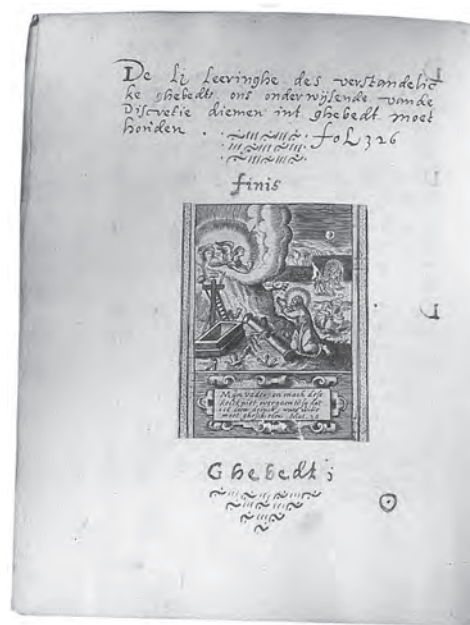 De Li Leeringhe des verstandelic
ke ghebedts ons onderwijsende vande
Discretie diemen int ghebedt moet
houden . foL 326
finis
Mijn vader, en mach dese
kelck niet overgaen ten sy dat
ick dien drincke, uwen wille
moet gheschieden Mat. 26
Ghebedt